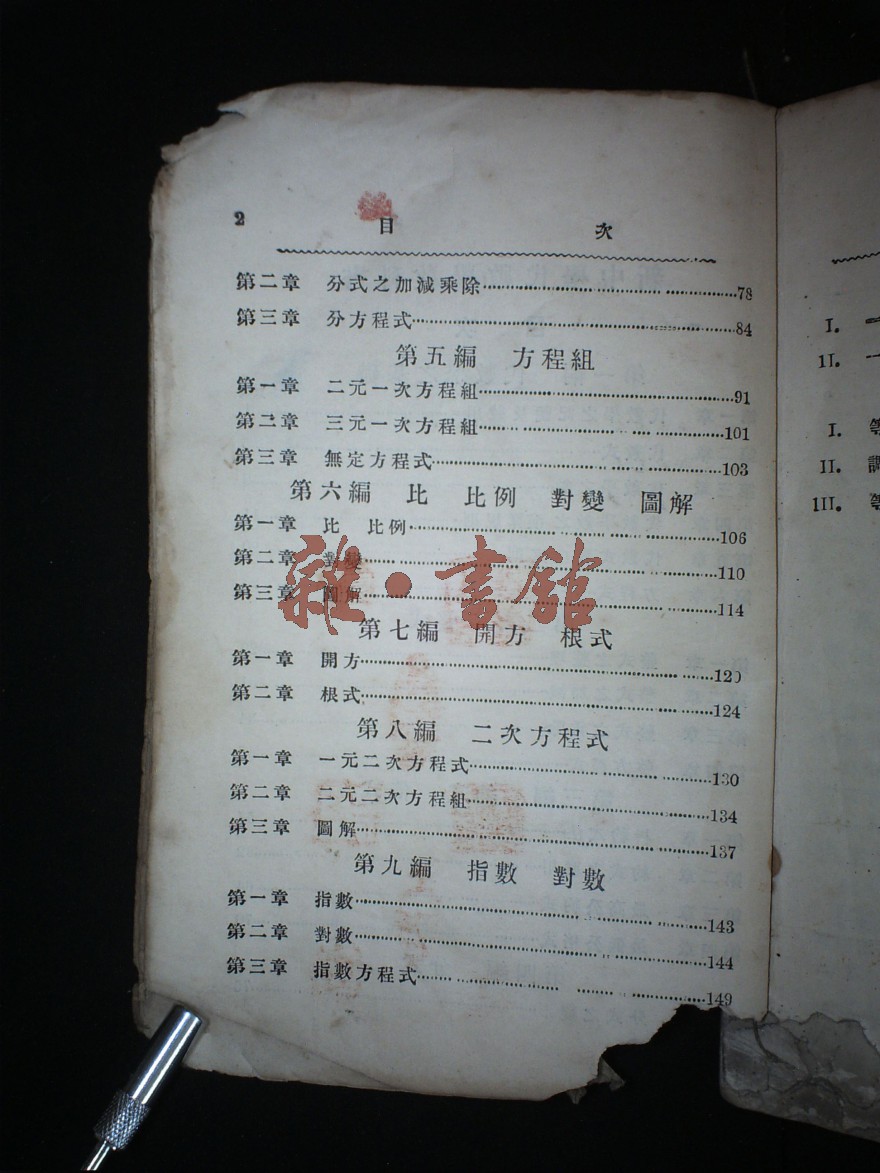 2
目 次
第二章 分式之加減乘除……78
第三章 分方程式……84
第五編 方程組
第一章 二元一次方程組……91
第二章 三元一次方程組……101
第三章 無定方程式……103
第六編 比 比例 對變 圖解
第一章 比 比例……106
第二章 對變……110
第三章 圖解……114
雜·書館
第七編 開方 根式
第一章 開方……120
第二章 根式……124
第八編 二次方程式
第一章 一元二次方程式……130
第二章 二元二次方程組……134
第三章 圖解……137
第九編 指數 對數
第一章 指數……143
第二章 對數……144
第三章 指數方程式……149
I.
II.
I.
II.
III.